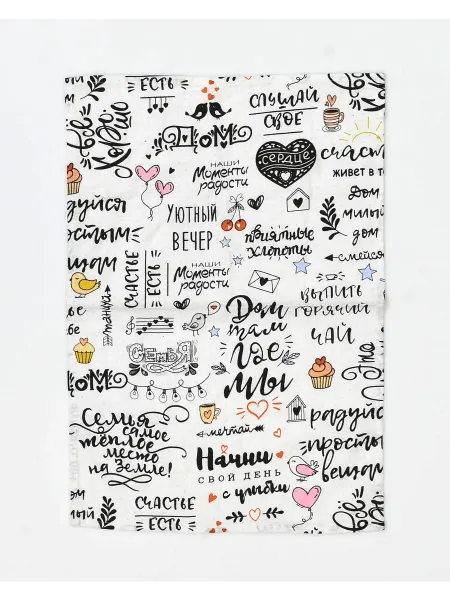 СЧАСТЬЕ
ЕСТЬ
СЛУШАЙ
СВОЕ
сердце
Всё
Хорошо
ДОМ
НАШИ
Моменты
радости
счастье
живет в т
Дом
милый
дом
УЮТНЫЙ
ВЕЧЕР
приятные
хлопоты
смейся
НАШИ
Моменты
радости
СЧАСТЬЕ
ЕСТЬ
танцуй
адуйся
ростым
ещам
выпить
горячий
ЧАЙ
Дом
там
где
мы
СЕМЬЯ
ОМ
мечтай
радуйся
просты
вещам
Семья
самое
тёплое
место
на Земле!
Начни
СВОЙ ДЕНЬ
с улыбки
СЧАСТЬЕ
ЕСТЬ